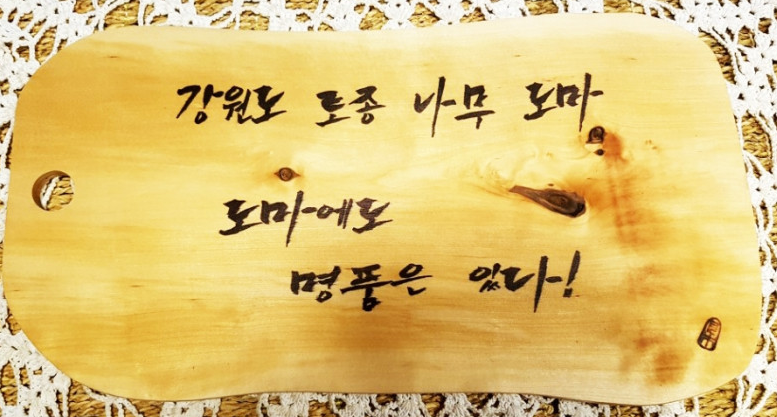 강원도 토종 나무 도마
도마에도
명품은 있다!